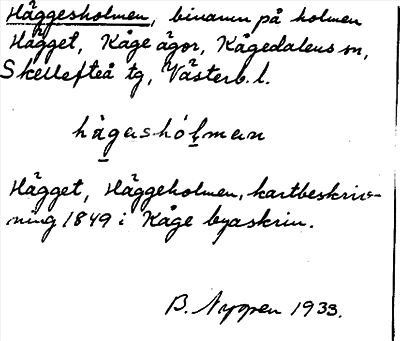 Häggesholmen, binamn på holmen
Hägget, Kåge ägor, Kågedalens sn,
Skellefteå tg, Västerb. l.
hägashólman
Hägget, Häggeholmen, kartbeskriv-
ning 1849 i Kåge byaskrin.
B. Nyppen 1933.